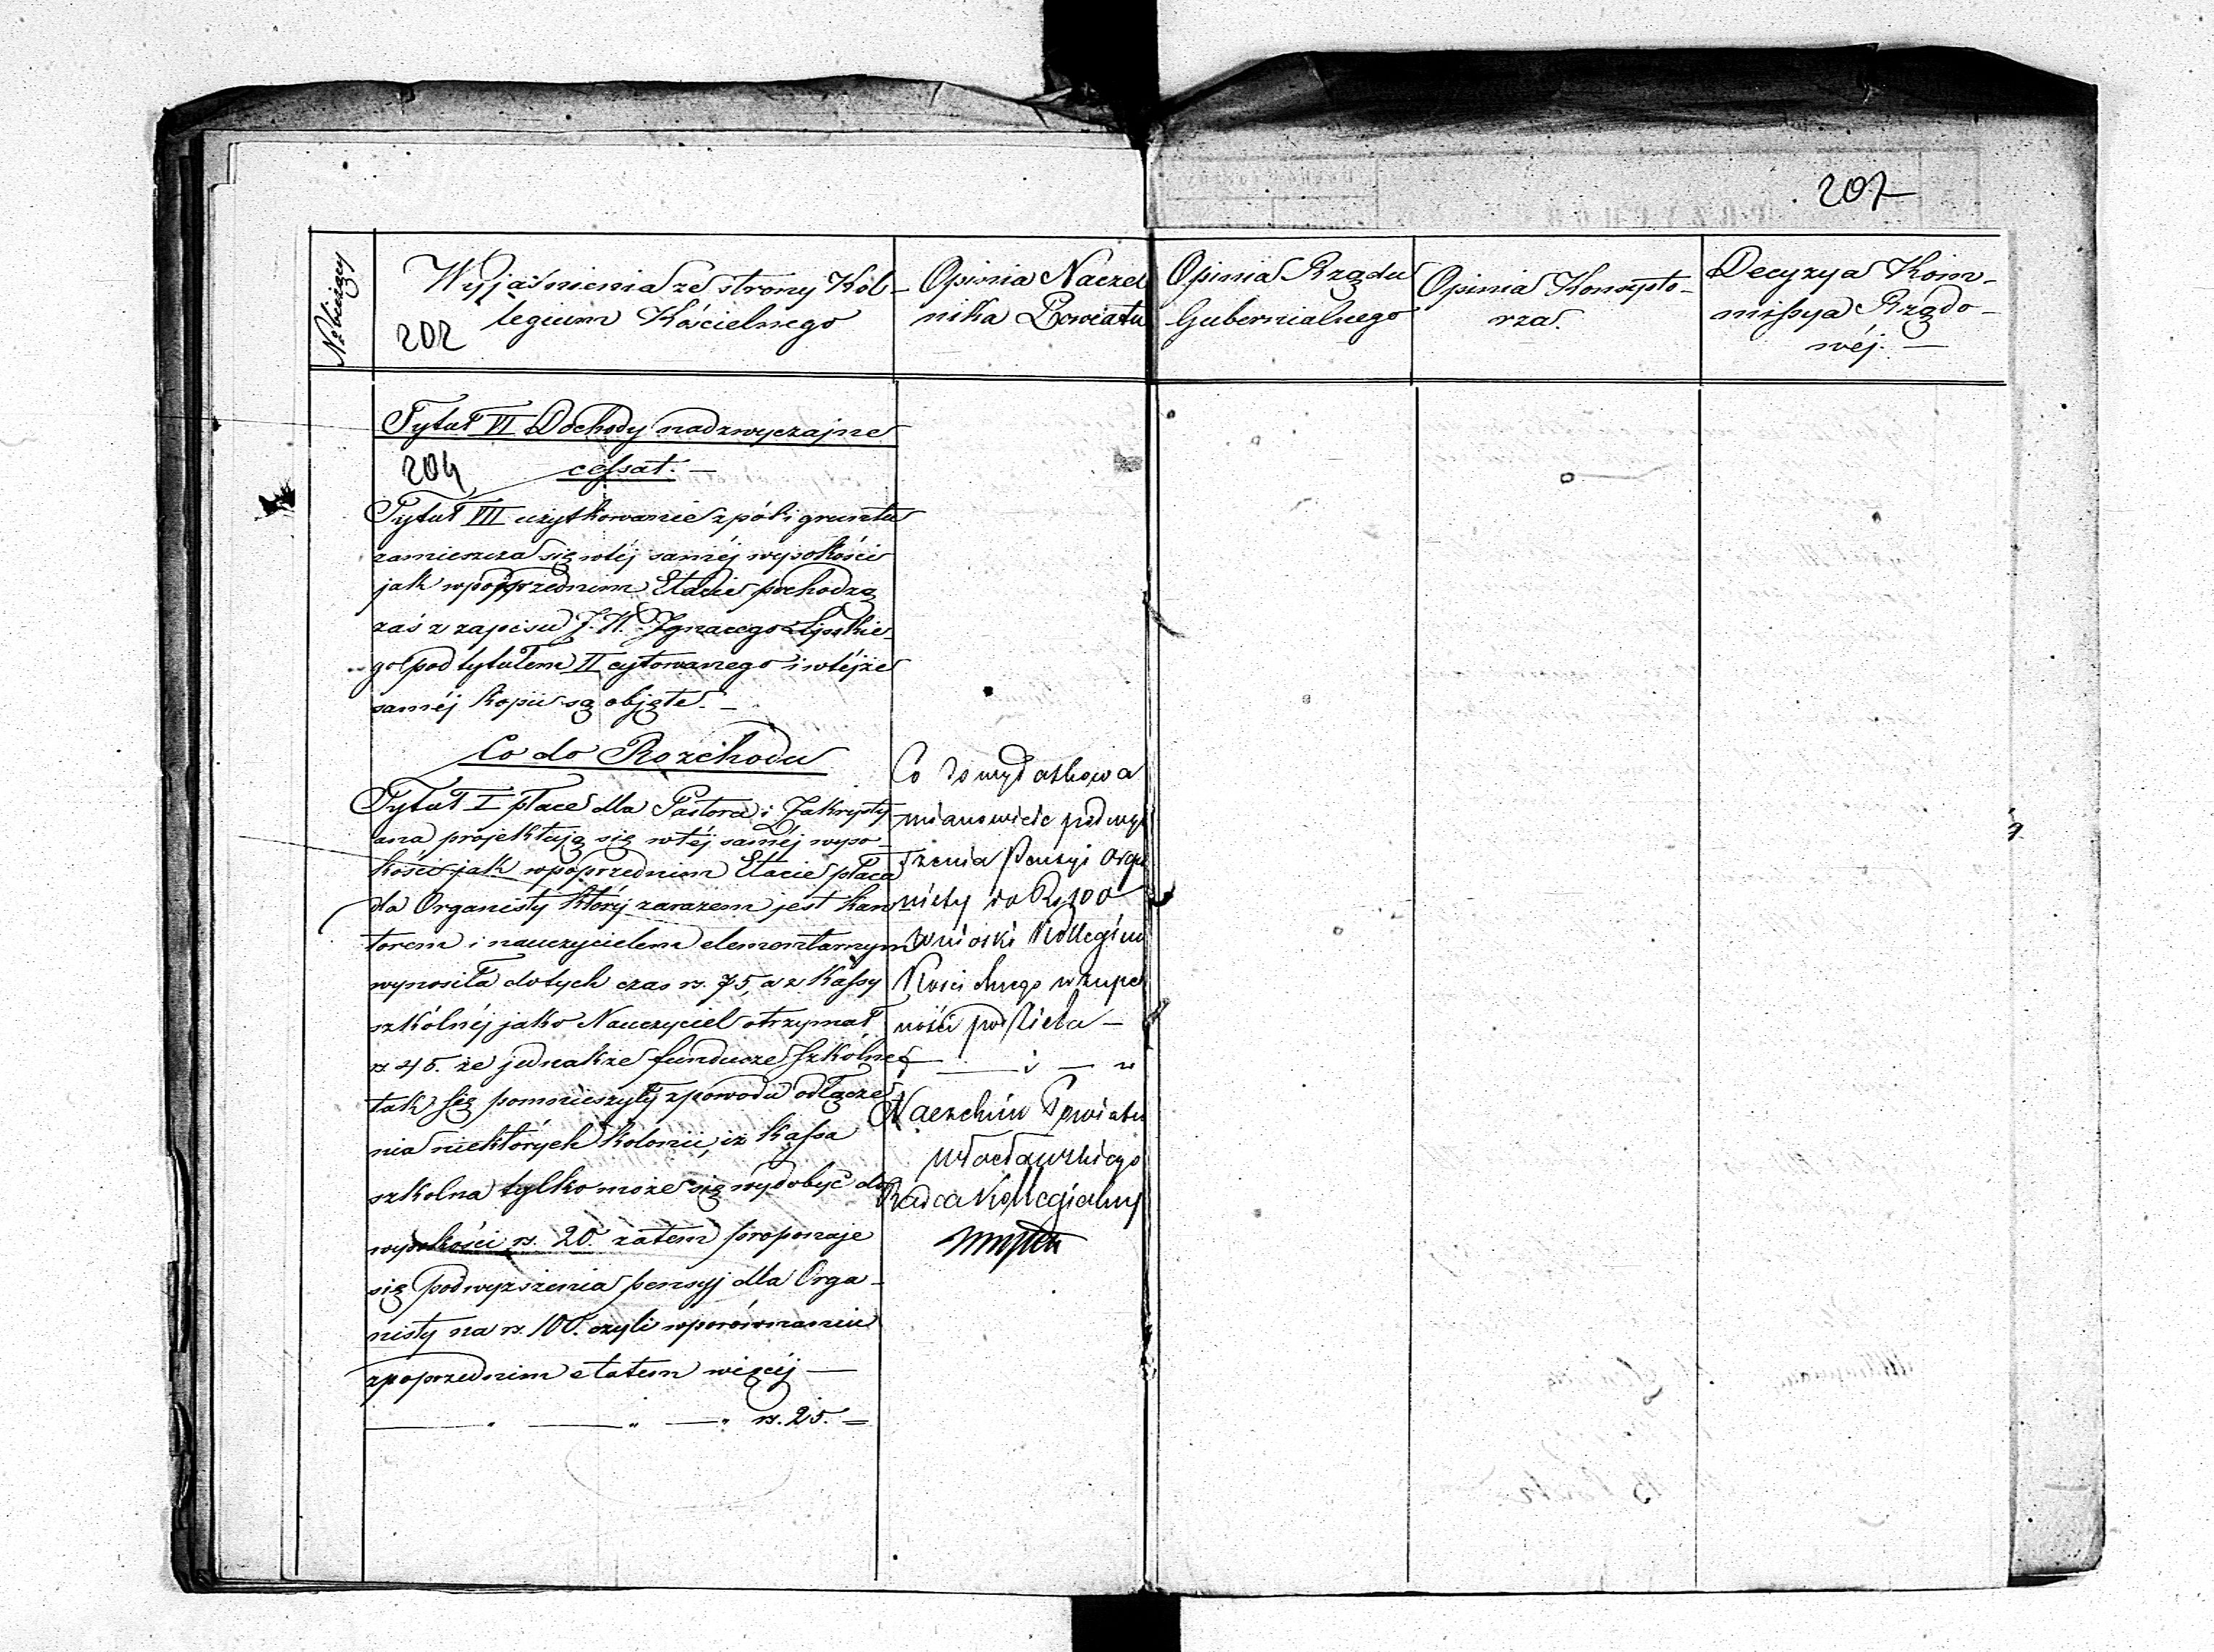 207
No bieżący
Wyjaśnienia ze strony Kol-
legium Kościelnego
202
Opinia Naczel
nika Powiatu
Opinia Rządu
Gubernialnego
Opinia Konsysto-
rza.
Decyzya Kom-
missya Rządo-
wéj. —
Tytuł VI Dochody nadzwyczajne
204
cessat. —
Tytuł VII użytkowanie z pól i gruntu
zamieszcza się wtéj saméj wysokości
jak wpoprzednim Etacie pochodzą
zaś z zapisu J. W. Ignacego Lipskie-
go pod tytułem II cytowanego i wtéjże
saméj kopii są objęte. —
Co do Rozchodu
Tytuł I płace dla Pastora i Zakrysty-
ana projektują się wtéj saméj wyso-
kości jak wpoprzednim Etacie płaca
dla Organisty który zarazem jest Kan-
torem i nauczycielem elementarnym
wynosiła dotych czas rs. 75, a z Kassy
szkólnéj jako Nauczyciel otrzymał
rs. 45. że jednakże fundusze szkólne
tak się pomnieszyły zpowodu odłącze-
nia niektórych kolonii, iż Kassa
szkolna tylko może się wydobyć do
wysokości rs. 20. zatem proponuje
się podwyższenia pensyj dla Orga-
nisty na rs. 100. czyli wporównaniu
zpoprzednim etatem więcéj —
— " — " — " rs. 25. —
Co do wydatkowa
mianowicie podwyż
szenia Pensyi Orga
nisty do Rs 100
wnioski Kollegium
Kościelnego wzupeł
ności podziela —
Naczelnik Powiatu
Włocławskiego
Radca Kollegialny